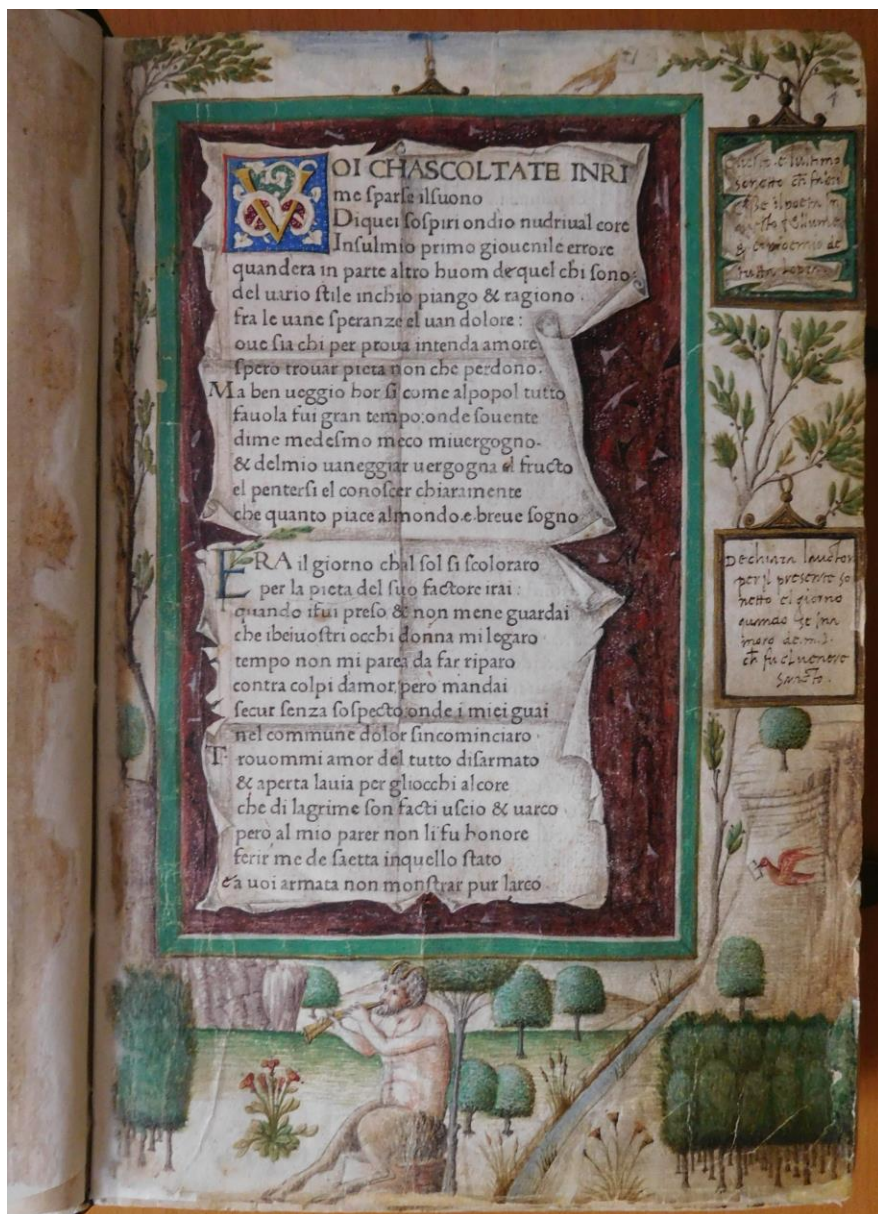 VOI CHASCOLTATE INRI
me sparse ilsuono
Diquei sospiri ondio nudriual core
Insulmio primo giouenile errore
quandera in parte altro huom de quel chi sono:
del uario stile inchio piango & ragiono
fra le uane speranze el uan dolore:
oue sia chi per proua intenda amore
spero trouar pieta non che perdono.
Ma ben ueggio hor si come alpopol tutto
fauola fui gran tempo: onde souente
dime medesmo meco miuergogno.
& delmio uaneggiar uergogna el fructo
el pentersi el conoscer chiaramente
che quanto piace almondo.e.breue sogno
ERA il giorno chal sol si scoloraro
per la pieta del suo factore irai:
quando ifui preso & non mene guardai
che ibeiuostri occhi donna mi legaro
tempo non mi parea da far riparo
contra colpi damor, pero mandai
secur senza sospecto onde i miei guai
nel commune dolor sincominciaro.
Trouommi amor del tutto disarmato
& aperta lauia per gliocchi alcore
che di lagrime son facti uscio & uarco
pero al mio parer non li fu honore
ferir me de saetta inquello stato
& a uoi armata non monstrar pur larco
ultimo
sonetto
il poeta in
questo uollume
& proemio de
tutta lopera
Dechiara lauctor
per il presente so
netto el giorno
quando se inna
moro de m. l.
ch fu el uenere
sancto.